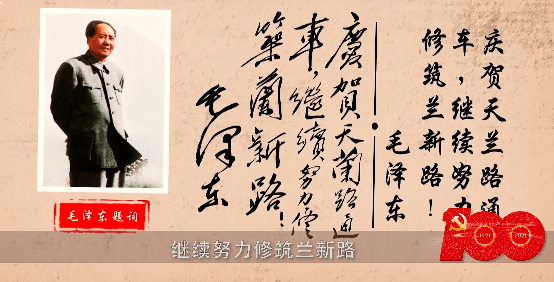 慶賀天蘭路通
車,繼續努力修
築蘭新路!
毛澤东
庆贺天兰路通
车,继续努力
修筑兰新路!
毛泽东
毛泽东题词
100
1921
2021
继续努力修筑兰新路